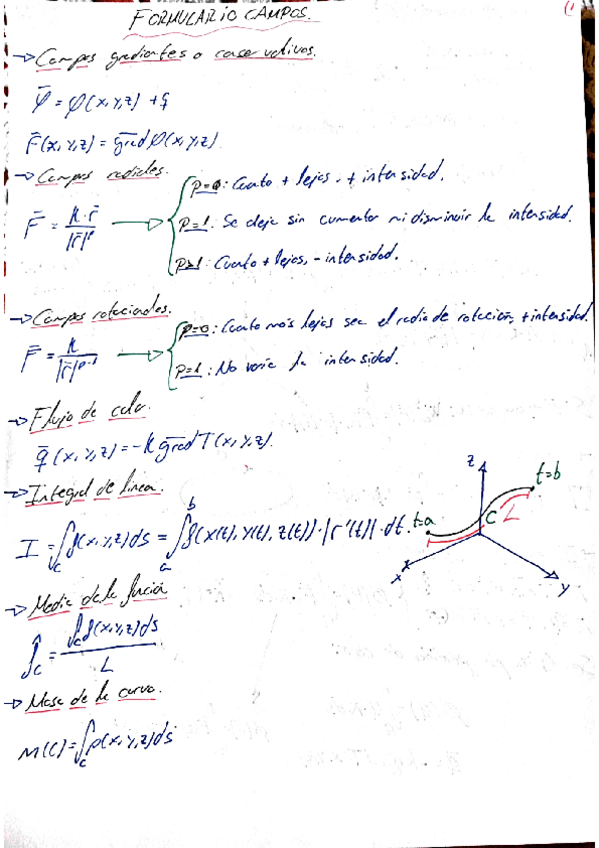 FORMULARIO CAMPOS. (1
→ Campos gradientes o conservativos.
φ̄ = φ(x,y,z) + ς
F̄(x,y,z) = grad φ(x,y,z)
→ Campos radiales.
F̄ = K·r̄ / |r̄|ᵖ
p=0: Cuanto + lejos, + intensidad.
p=1: Se deja sin aumentar ni disminuir la intensidad.
p>1: Cuanto + lejos, - intensidad.
→ Campos rotacionales.
F̄ = K / |r̄|ᵖ⁻¹
p=0: Cuanto más lejos sea el radio de rotación, + intensidad.
p=1: No varía la intensidad.
→ Flujo de calor.
q̄(x,y,z) = -K grad T(x,y,z).
→ Integral de línea.
I = ∫_C f(x,y,z) ds = ∫_a^b f(x(t), y(t), z(t))·|r'(t)|·dt.
z
t=b
t=a
C
L
x
y
→ Media de la función
f̂_C = ∫_C f(x,y,z) ds / L
→ Masa de la curva.
M(C) = ∫_C ρ(x,y,z) ds